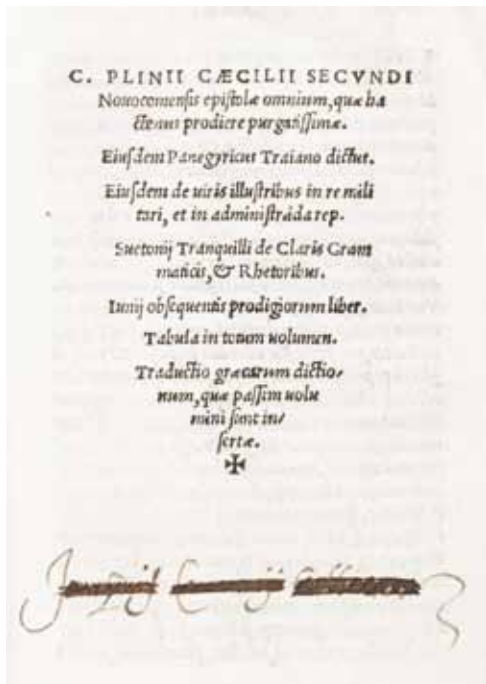 C. PLINII CÆCILII SECVNDI
Nouocomensis epistolæ omnium, quæ ha
ctenus prodiere purgatissimæ.
Eiusdem Panegyricus Traiano dictus.
Eiusdem de uiris illustribus in re mili
tari, et in administrāda rep.
Suetonij Tranquilli de Claris Gram
maticis, & Rhetoribus.
Iunij obsequentis prodigiorum liber.
Tabula in totum uolumen.
Traductio græcarum dictio-
num, quæ passim uolu
mini sunt in/
sertæ.